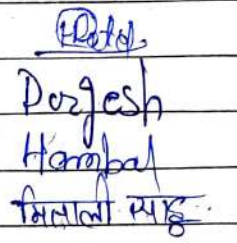 Dorgesh
Hambal
मिताली साहू